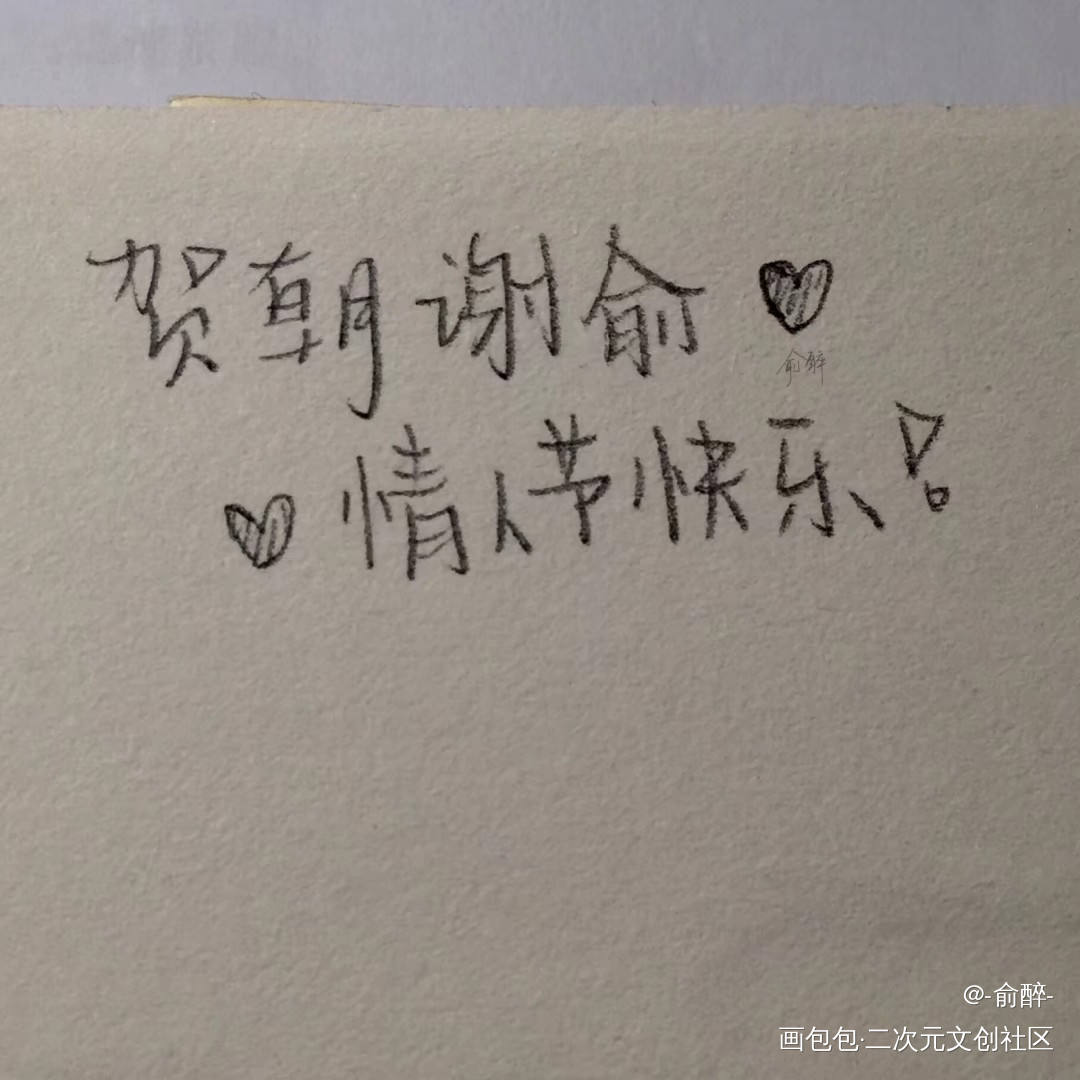 贺朝谢俞♥
俞醉
♥情人节快乐!
@-俞醉-
画包包·二次元文创社区